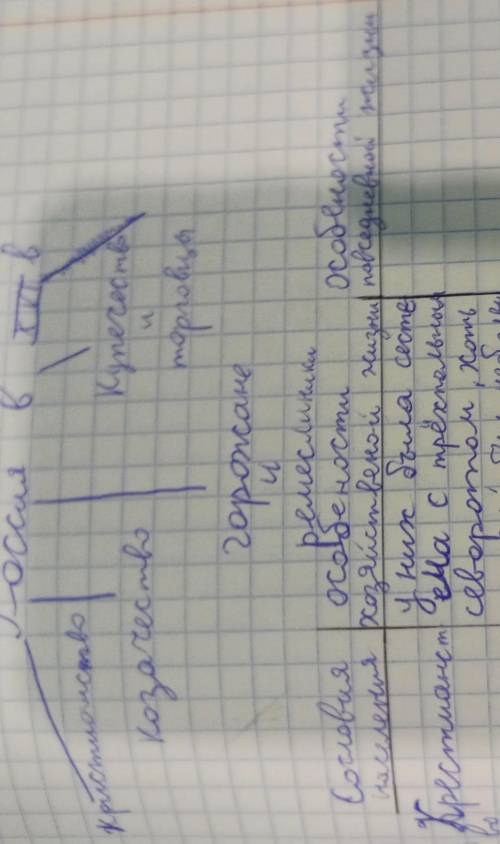 Россия в XVI в
Кристианство
Козачество
горожане
и
ремеслиники
Купечество
и
торговцы
Сословия
населения
особености
хозяйственой жизни
особености
повседневной жизни
Крестианст
во
У них была сест
ема с трёхпольным
севоротом, хоть